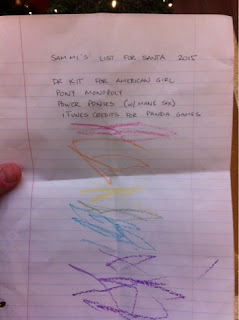 SAMMI'S LIST FOR SANTA 2015
DR KIT FOR AMERICAN GIRL
PONY MONOPOLY
POWER PONIES (W/ MANE SIX)
ITUNES CREDITS FOR PANDA GAMES